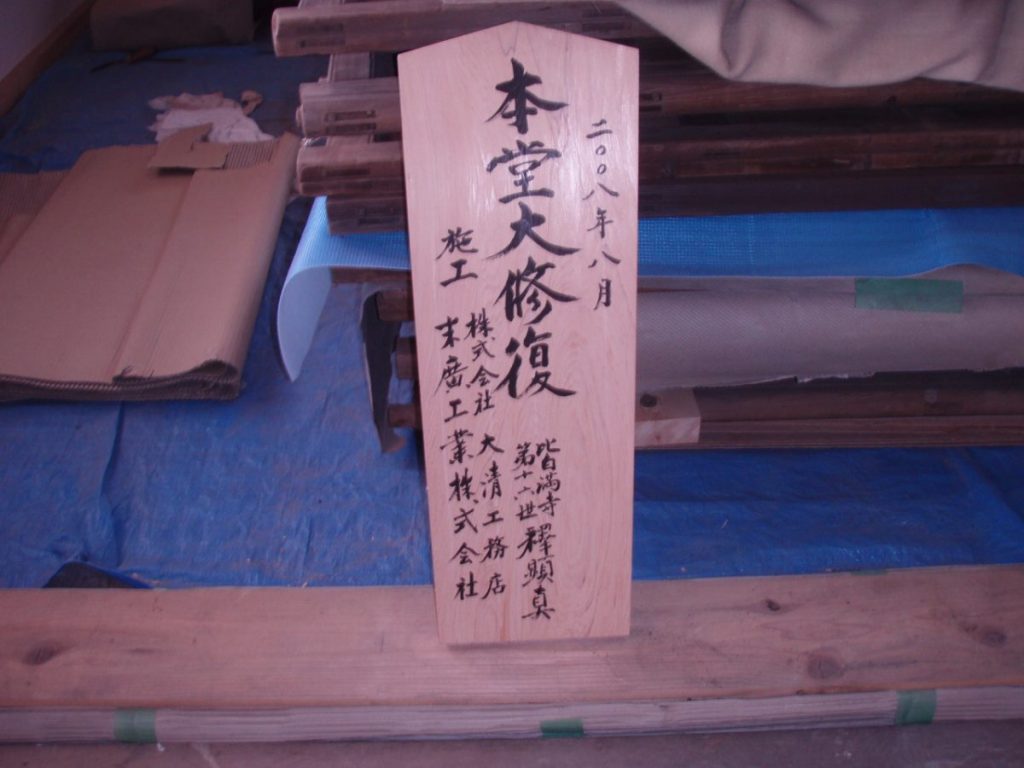 二〇〇八年八月
本堂大修復
皆満寺
第十六世 釋顕真
施工
株式会社 大清工務店
末廣工業株式会社